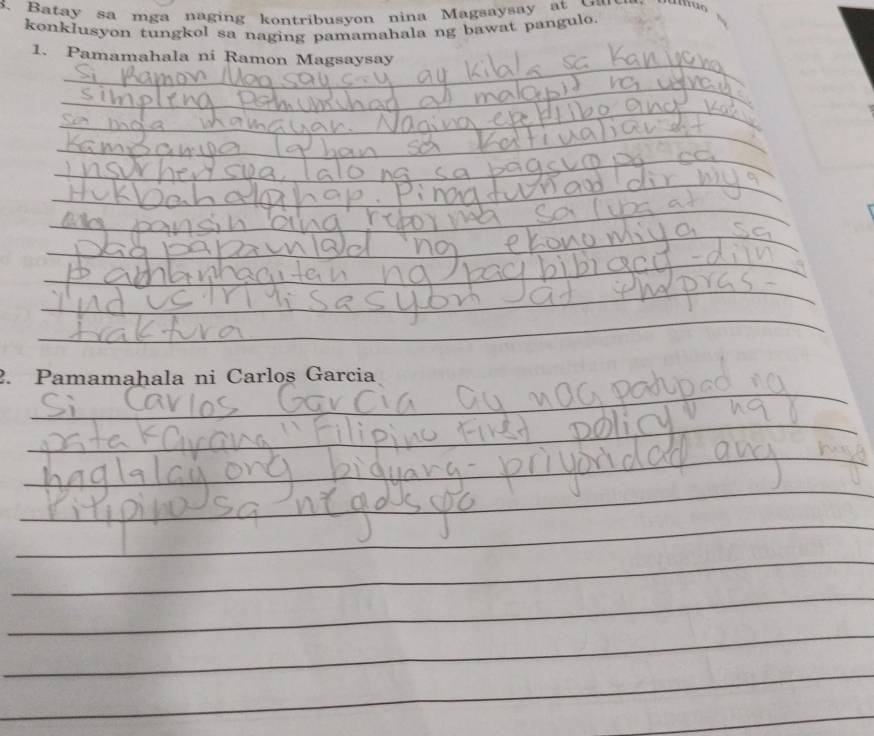 3. Batay sa mga naging kontribusyon nina Magsaysay at
konklusyon tungkol sa naging pamamahala ng bawat pangulo.
1. Pamamahala ni Ramon Magsaysay
Si Ramon Magsaysay ay kilala sa kanyang
simpleng at malapit na
sa mga mamayan. Naging epektibo ang
laban sa katiwalian at
lalo na sa pagsugpo sa
Hukbalahap. Pinagtuonan dir niya
ang pansin ang reporma sa lupa at
pagpapaunlad ng ekonomiya sa
ng pagbibigay-diin
sa at impras-
traktura
2. Pamamahala ni Carlos Garcia
Si Carlos Garcia ay nagpatupad ng
patakarang "Filipino First policy" na
naglalayong bigyang-priyoridad ang mga
Pilipino sa negosyo